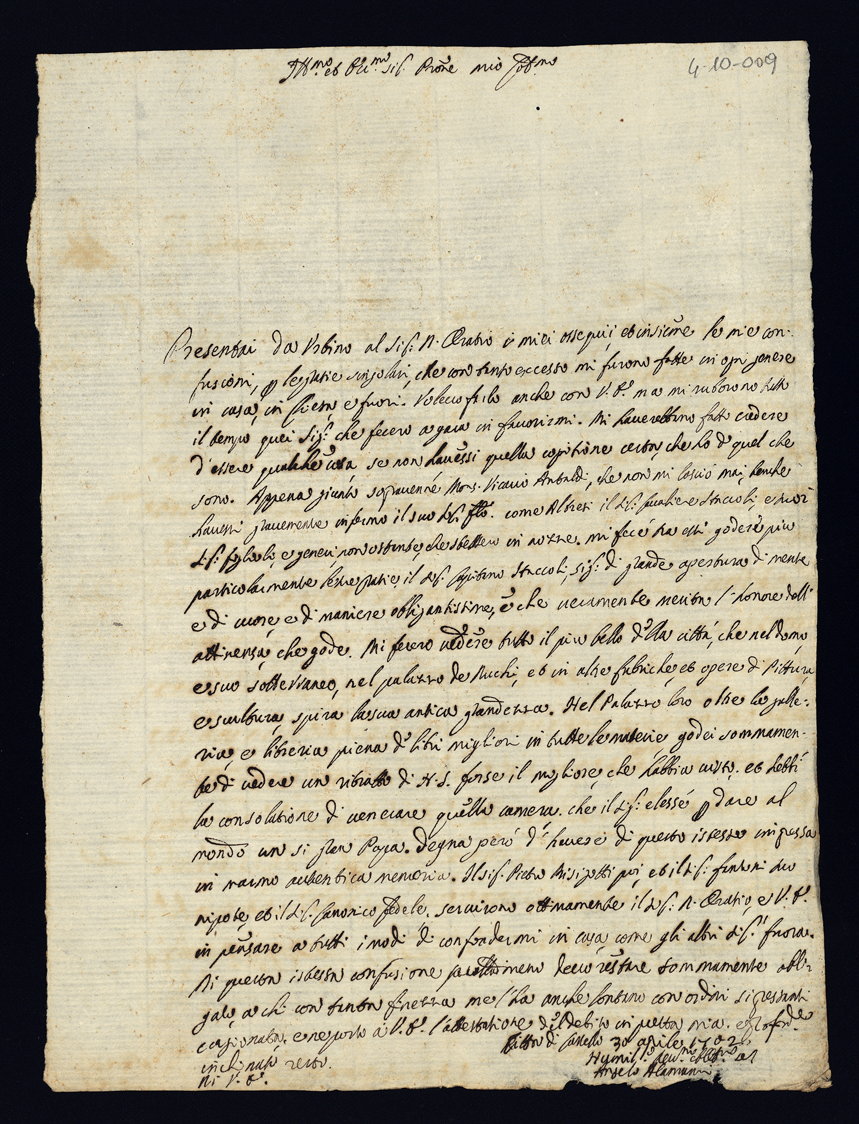 4-10-009
Ill.mo et sig.r Prone mio
Presentai da Urbino al Sig.r D. Oratio i miei ossequii, et insieme le mie con-
fusioni, p le gratie singolari, che con tanto eccesso mi furono fatte in ogni genere
in casa, in e fuori. Volevo farlo anche con V.S. ma mi ruborono tutto
il tempo quei Sig.ri che fecero a gara in favorirmi. Mi haverebbono fatto credere
d'essere qualche cosa, se non havessi quella cognitione certa che ho di quel che
sono. Appena giunto sopravenne Mons. Vicario che non mi lasciò mai, benche
havesse gravemente infermo il suo come Altresi il Sig. Staccoli, e suoi
e generi, non ostante, che stassero in mi fece frà essi godere più
particolarmente le sue gratie, il Sig. Staccoli, sig.r di grande apertura di mente
e di cuore, e di maniere obligantissime, e che veramente merita l'honore dell'
attinenza, che gode. Mi fecero vedere tutto il più bello della città, che nel domo
e suo sotterraneo, nel palazzo de Duchi, et in altre fabriche et opere di Pittura
e scultura, spira la sua antica grandezza. Nel Palazzo loro oltre la galle-
ria, e libreria piena di libri migliori in tutte le materie godei sommamen-
te di vedere un ritratto di N.S. forse il migliore, che habbia visto. et hebbi
la consolatione di venerare quella camera. che il elesse p dare al
mondo un si gran Papa. Degna però d'havere di questo istesso impressa
in marmo autentica memoria. Il sig.r poi, et il suo
nipote, et il Sig. Canonico Fedele. servirono ottimamente il Sig. D. Oratio, e V.S.
in pensare a tutti i modi di confondermi in casa, come gli altri Sig.ri fuora.
Di questa istessa confusione devo restare sommamente obbli-
gato, a chi con tanta finezza me l'ha anche lontano con ordini si pressanti
cagionata. e a V.S. l'attestatione del debito in questa mia. e
inchinato resto.
Di V.S.
Città di Castello 30 aprile 1702
Angelo Alamanni